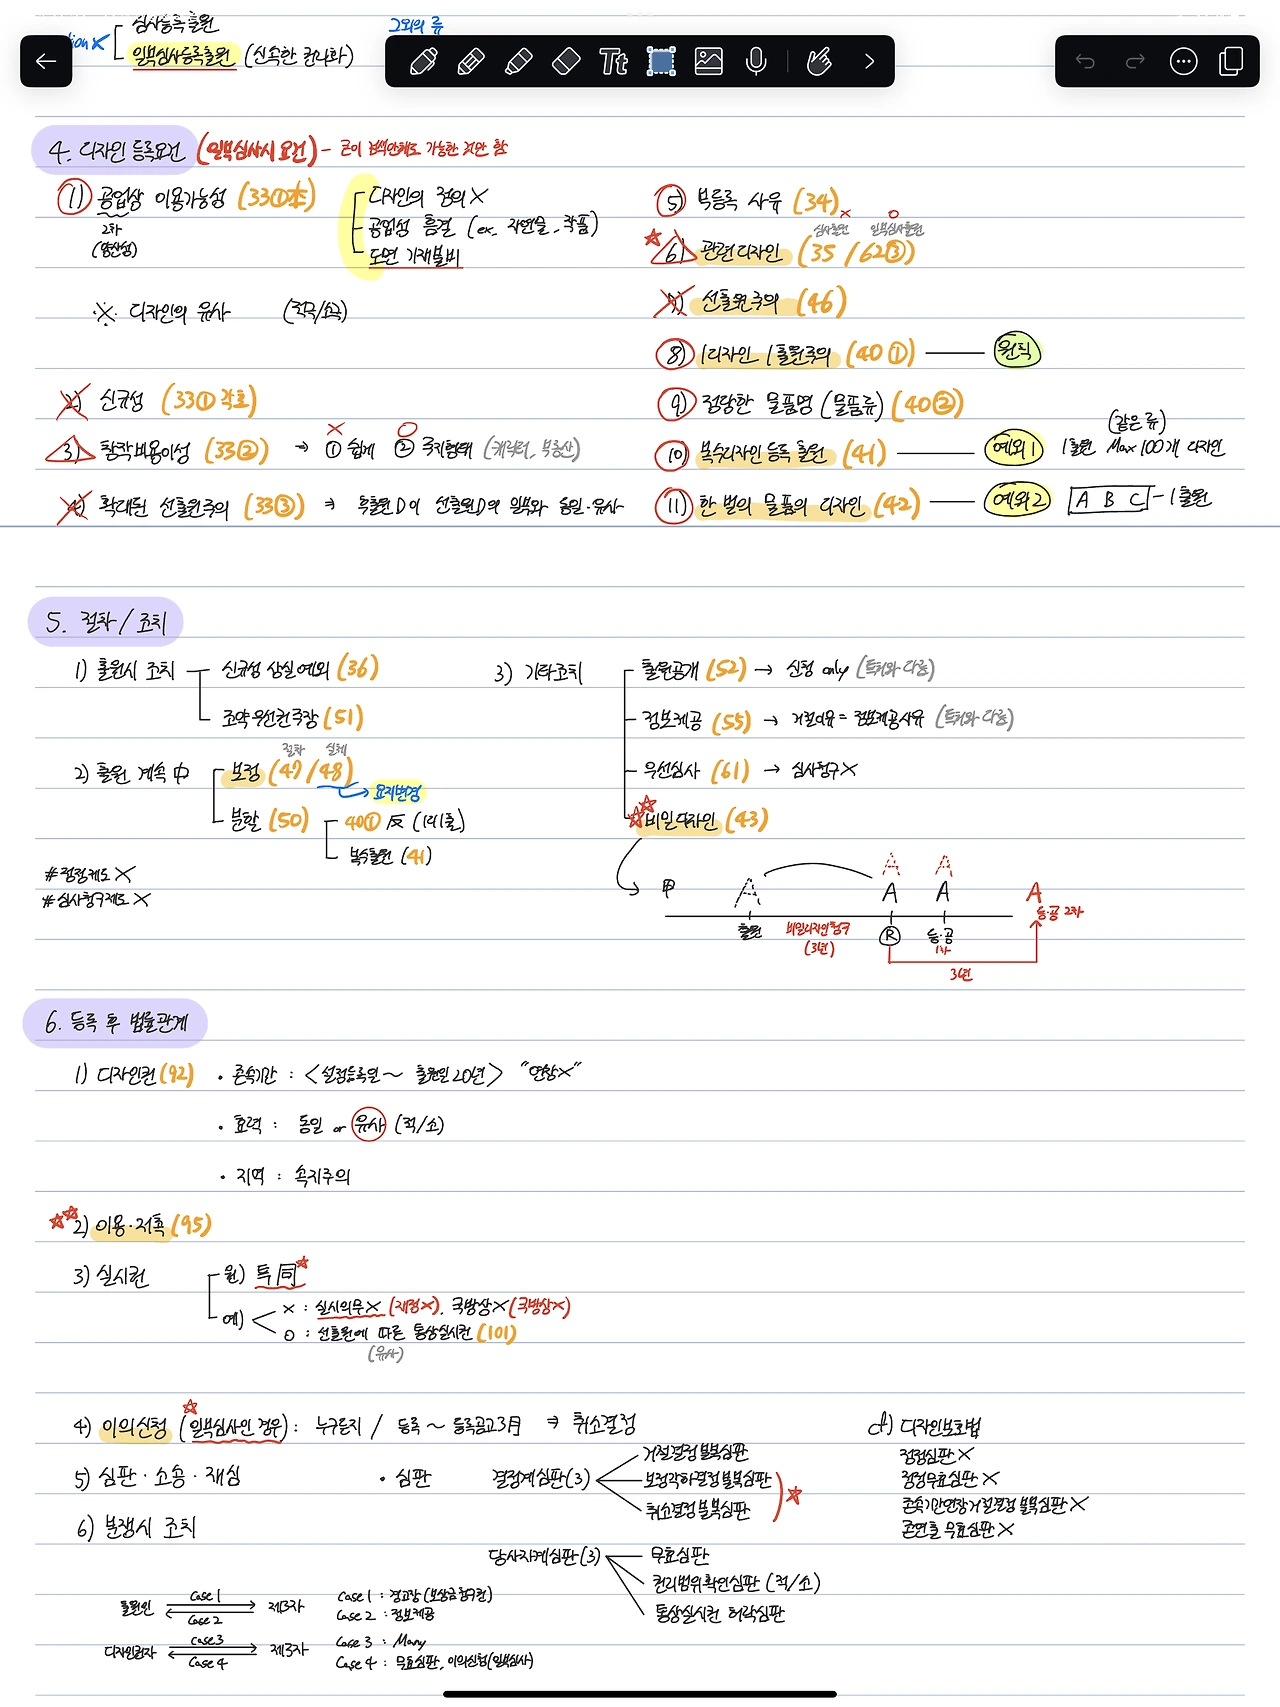 심사등록출원
그외의 류
일부심사등록출원 (신속한 권리화)
Tt
4. 디자인 등록요건 (일부심사시 요건) - 굳이 검색안해도 가능한 것만 함
1) 공업상 이용가능성 (33①本)
2차
(양산성)
디자인의 정의 X
공업성 흠결 (ex. 자연물, 작품)
도면 기재불비
※ 디자인의 유사 (적극/소극)
2) 신규성 (33① 각호)
3) 창작비용이성 (33②) → ① 쉽게 ② 국지형태 (캐릭터, 부동산)
X O
4) 확대된 선출원주의 (33③) ⇒ 후출원D이 선출원D의 일부와 동일·유사
5) 부등록 사유 (34)
심사출원 X 일부심사출원 O
6) 관련디자인 (35 / 62③)
7) 선출원주의 (46)
8) 1디자인 1출원주의 (40①) — 원칙
9) 정당한 물품명 (물품류) (40②)
(같은 류)
10) 복수디자인 등록 출원 (41) — 예외1 1출원 Max 100개 디자인
11) 한 벌의 물품의 디자인 (42) — 예외2 A B C - 1출원
5. 절차 / 조치
1) 출원시 조치
신규성 상실예외 (36)
조약우선권주장 (51)
2) 출원 계속 中
절차 실체
보정 (47 / 48)
→ 요지변경
분할 (50)
40① 反 (1디1출)
복수출원 (41)
#정정제도 X
#심사청구제도 X
3) 기타조치
출원공개 (52) → 신청 only (특허와 다름)
정보제공 (55) → 거절이유 = 정보제공사유 (특허와 다름)
우선심사 (61) → 심사청구 X
비밀디자인 (43)
甲 A A A A A A
출원 비밀디자인청구 (3년) R 등·공 1차 등·공 2차
3년
6. 등록 후 법률관계
1) 디자인권 (92) • 존속기간 : <설정등록일 ~ 출원일 20년> "연장X"
• 효력 : 동일 or 유사 (적/소)
• 지역 : 속지주의
2) 이용·저촉 (95)
3) 실시권
원) 특 同
예)
X : 실시의무X (재정X), 국방상X (국방상X)
O : 선출원에 따른 통상실시권 (101)
(유사)
4) 이의신청 (일부심사인 경우) : 누구든지 / 등록 ~ 등록공고 3月 ⇒ 취소결정
5) 심판·소송·재심
• 심판
결정계심판(3)
거절결정 불복심판
보정각하결정 불복심판
취소결정 불복심판
당사자계심판(3)
무효심판
권리범위확인심판 (적/소)
통상실시권 허락심판
cf) 디자인보호법
정정심판 X
정정무효심판 X
존속기간연장거절결정 불복심판 X
존연출 무효심판 X
6) 분쟁시 조치
출원인 Case 1 Case 2 제3자
Case 1 : 경고장 (보상금청구권)
Case 2 : 정보제공
디자인권자 Case 3 Case 4 제3자
Case 3 : Many
Case 4 : 무효심판, 이의신청(일부심사)